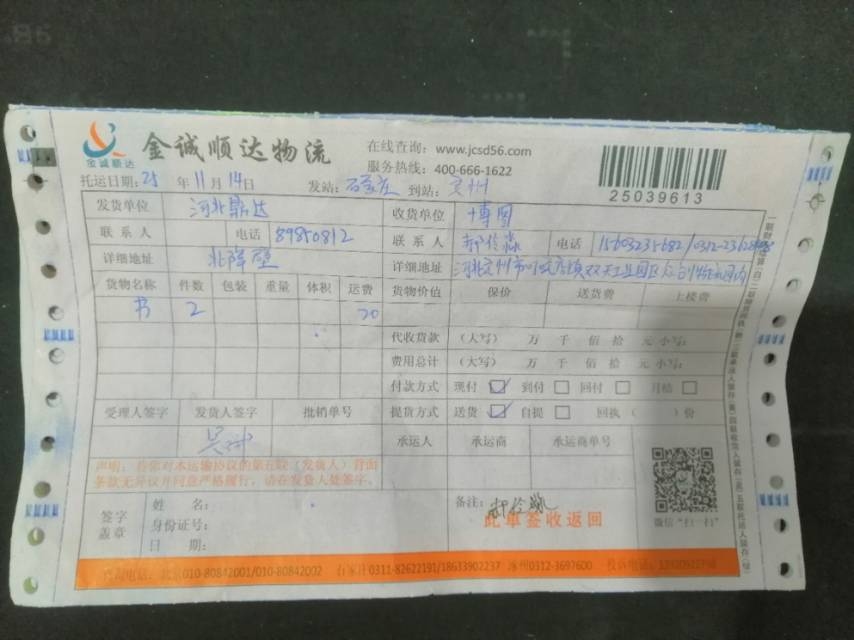 金诚顺达
金诚顺达物流
在线查询：www.jcsd56.com
服务热线：400-666-1622
25039613
托运日期：25 年 11 月 14 日 发站：石家庄 到站：定州
发货单位 河北鼎达 收货单位 博图
联系人 电话 89850812 联系人 电话 15603235682
详细地址 北降壁 详细地址 河北定州市
货物名称 件数 包装 重量 体积 运费 货物价值 保价 送货费 上楼费
书 2
代收货款 （大写） 万 千 佰 拾 元 小写：
费用总计 （大写） 万 千 佰 拾 元 小写：
付款方式 现付 到付 回付 月结
受理人签字 发货人签字 批销单号 提货方式 送货 自提 回执（ ）份
承运人 承运商 承运商单号
声明：若您对本运输协议的第五联（发货人）背面
条款无异议并同意严格履行，请在发货人处签字。
签字
盖章
姓 名：
身份证号：
日 期：
备注：
此单签收返回
微信“扫一扫”
咨询电话：北京010-80842001/010-80842002 石家庄0311-82622191/18633902237 涿州0312-3697600 投诉电话：